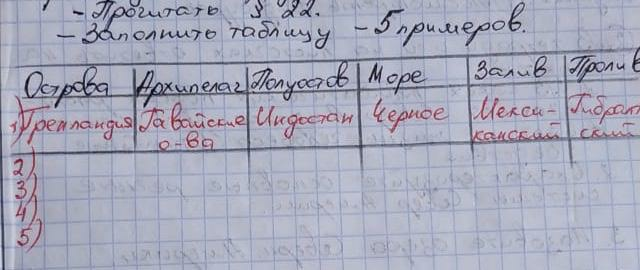 - Прочитать § 22.
- Заполнить таблицу - 5 примеров.
Острова Архипелаг Полуостов Море Залив Пролив
1) Гренландия Гавайские о-ва Индостан Черное Мекси-канский Гибралтский
2)
3)
4)
5)